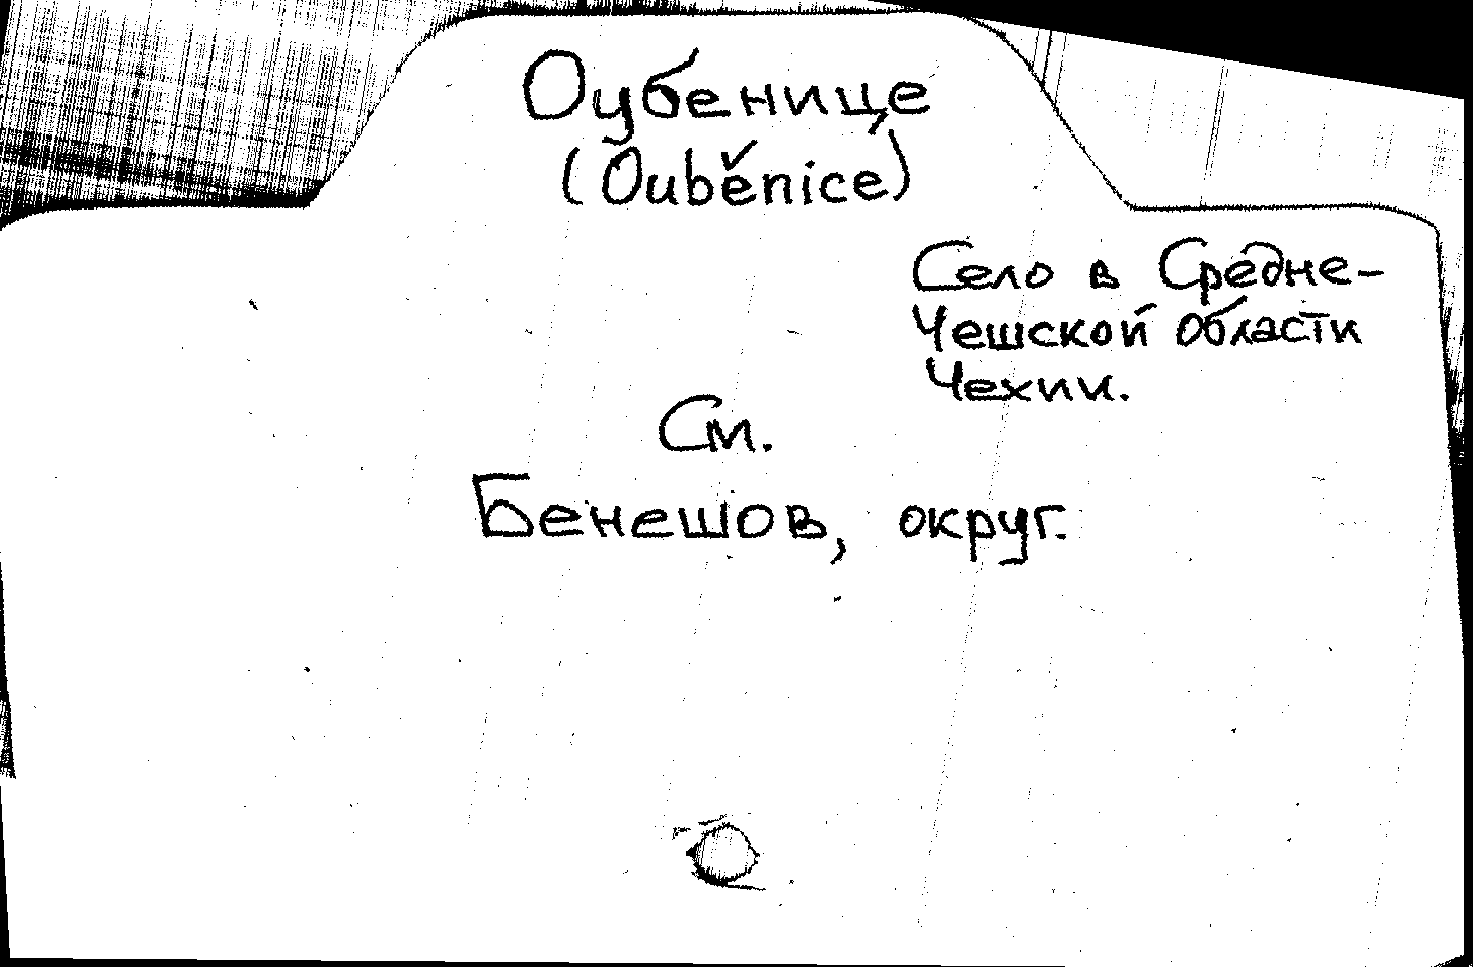 Оубенице
(Ouběnice)
Село в Средне-
Чешской области
Чехии.
См.
Бенешов, округ.